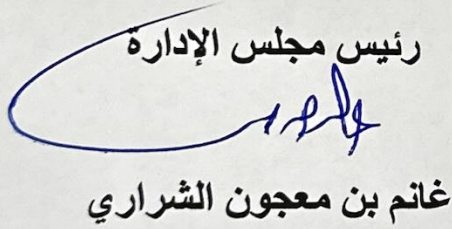 رئيس مجلس الإدارة
غانم بن معجون الشراري